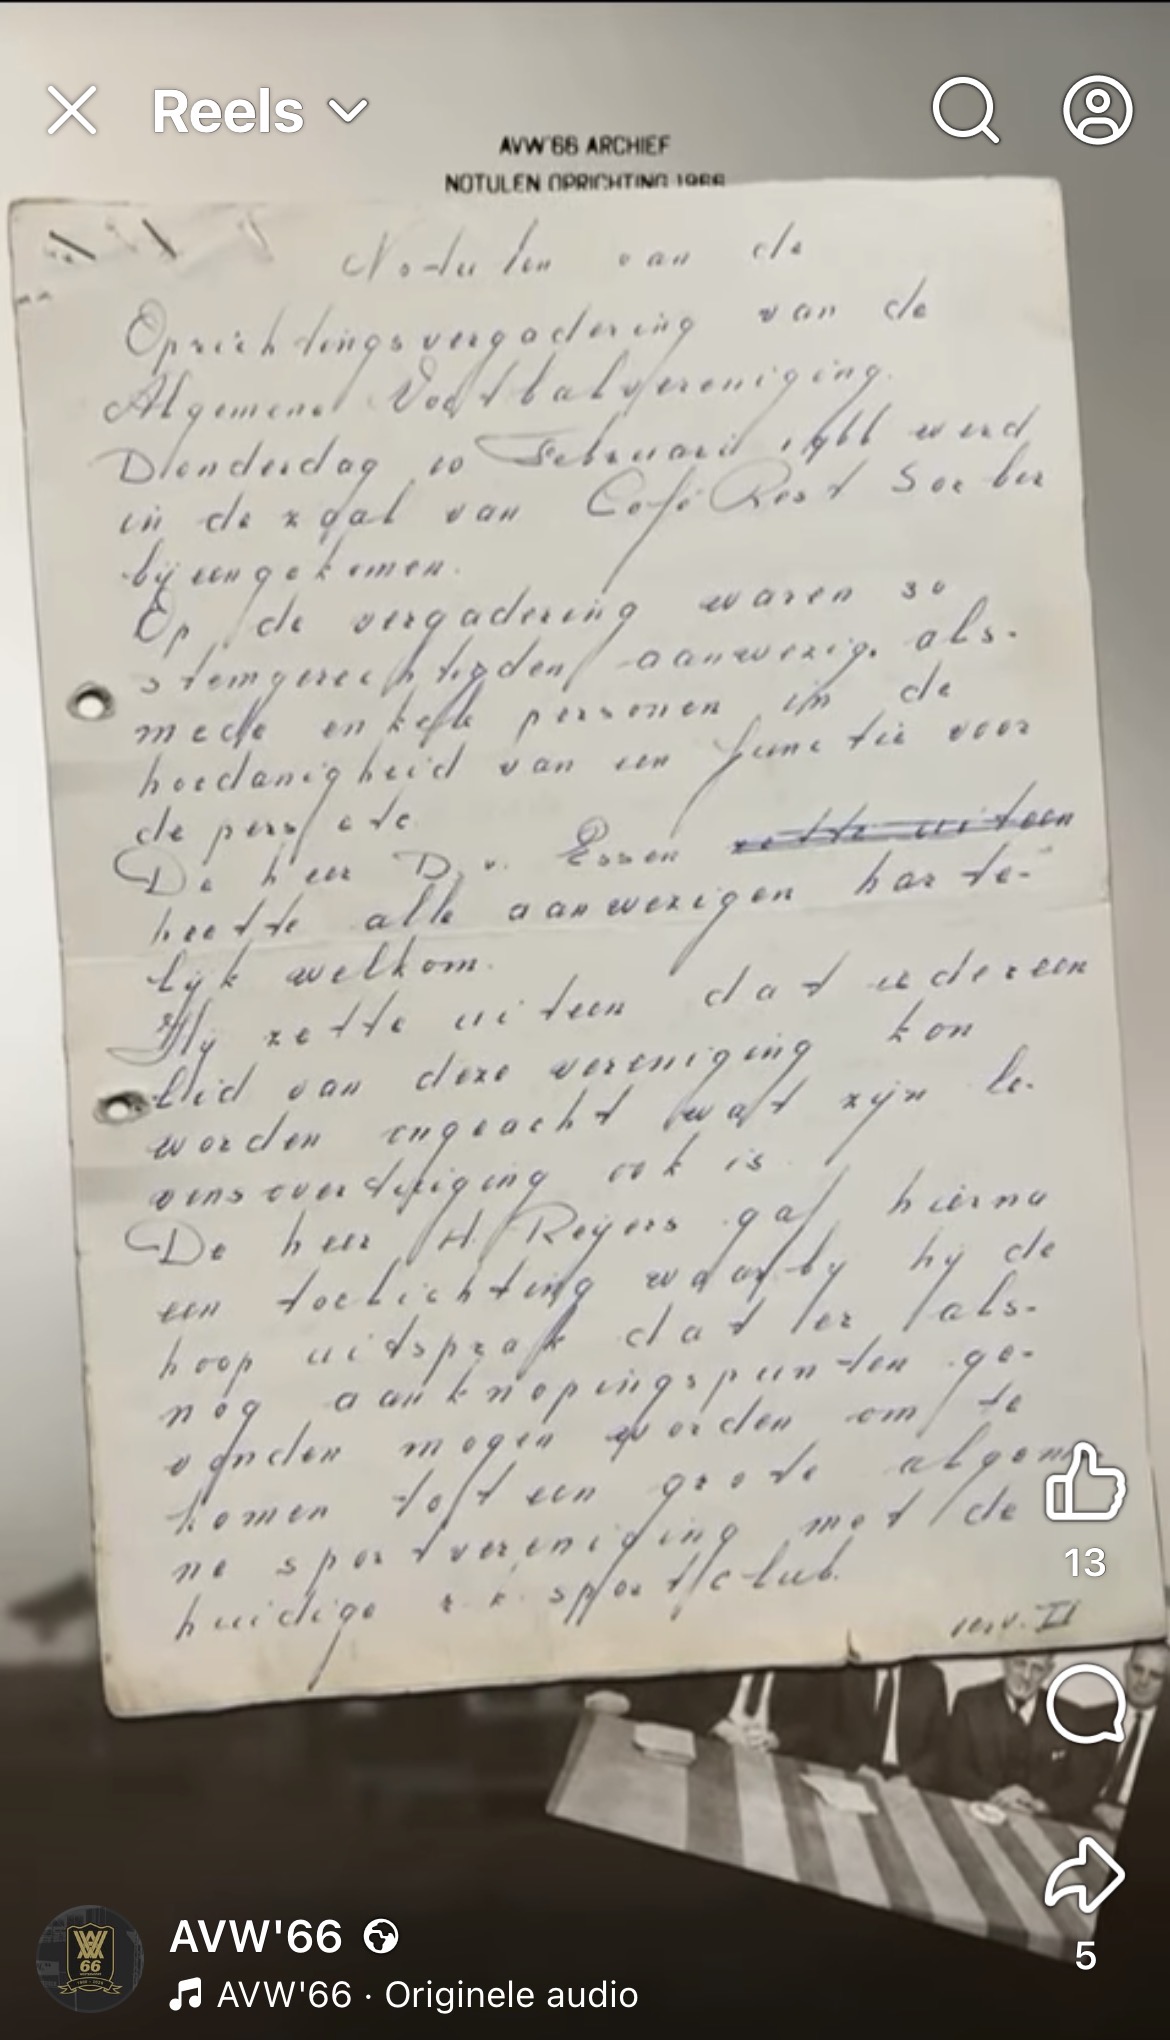 Reels
AVW'66 ARCHIEF
NOTULEN OPRICHTING 1966
Notulen van de
Oprichtingsvergadering van de
Algemene Voetbalvereniging.
Donderdag 10 Februari 1966 werd
in de zaal van Café Rest
bijeengekomen.
Op de vergadering waren
stemgerechtigden aanwezig, als-
mede enkele personen in de
hoedanigheid van een functie voor
de pers etc.
De heer D. v. Essen zette uiteen
heette alle aanwezigen harte-
lijk welkom.
Hij zette uiteen dat iedereen
lid van deze vereniging kon
worden ongeacht wat zijn le-
vensovertuiging ook is.
De heer H. Reijers gaf hierna
een toelichting waarbij hij de
hoop uitsprak dat er als-
nog aanknopingspunten ge-
vonden mogen worden om te
komen tot een grote
ne sportvereniging met de
huidige r.k. sportclub.
verv. II
13
5
66
AVW'66
AVW'66 · Originele audio